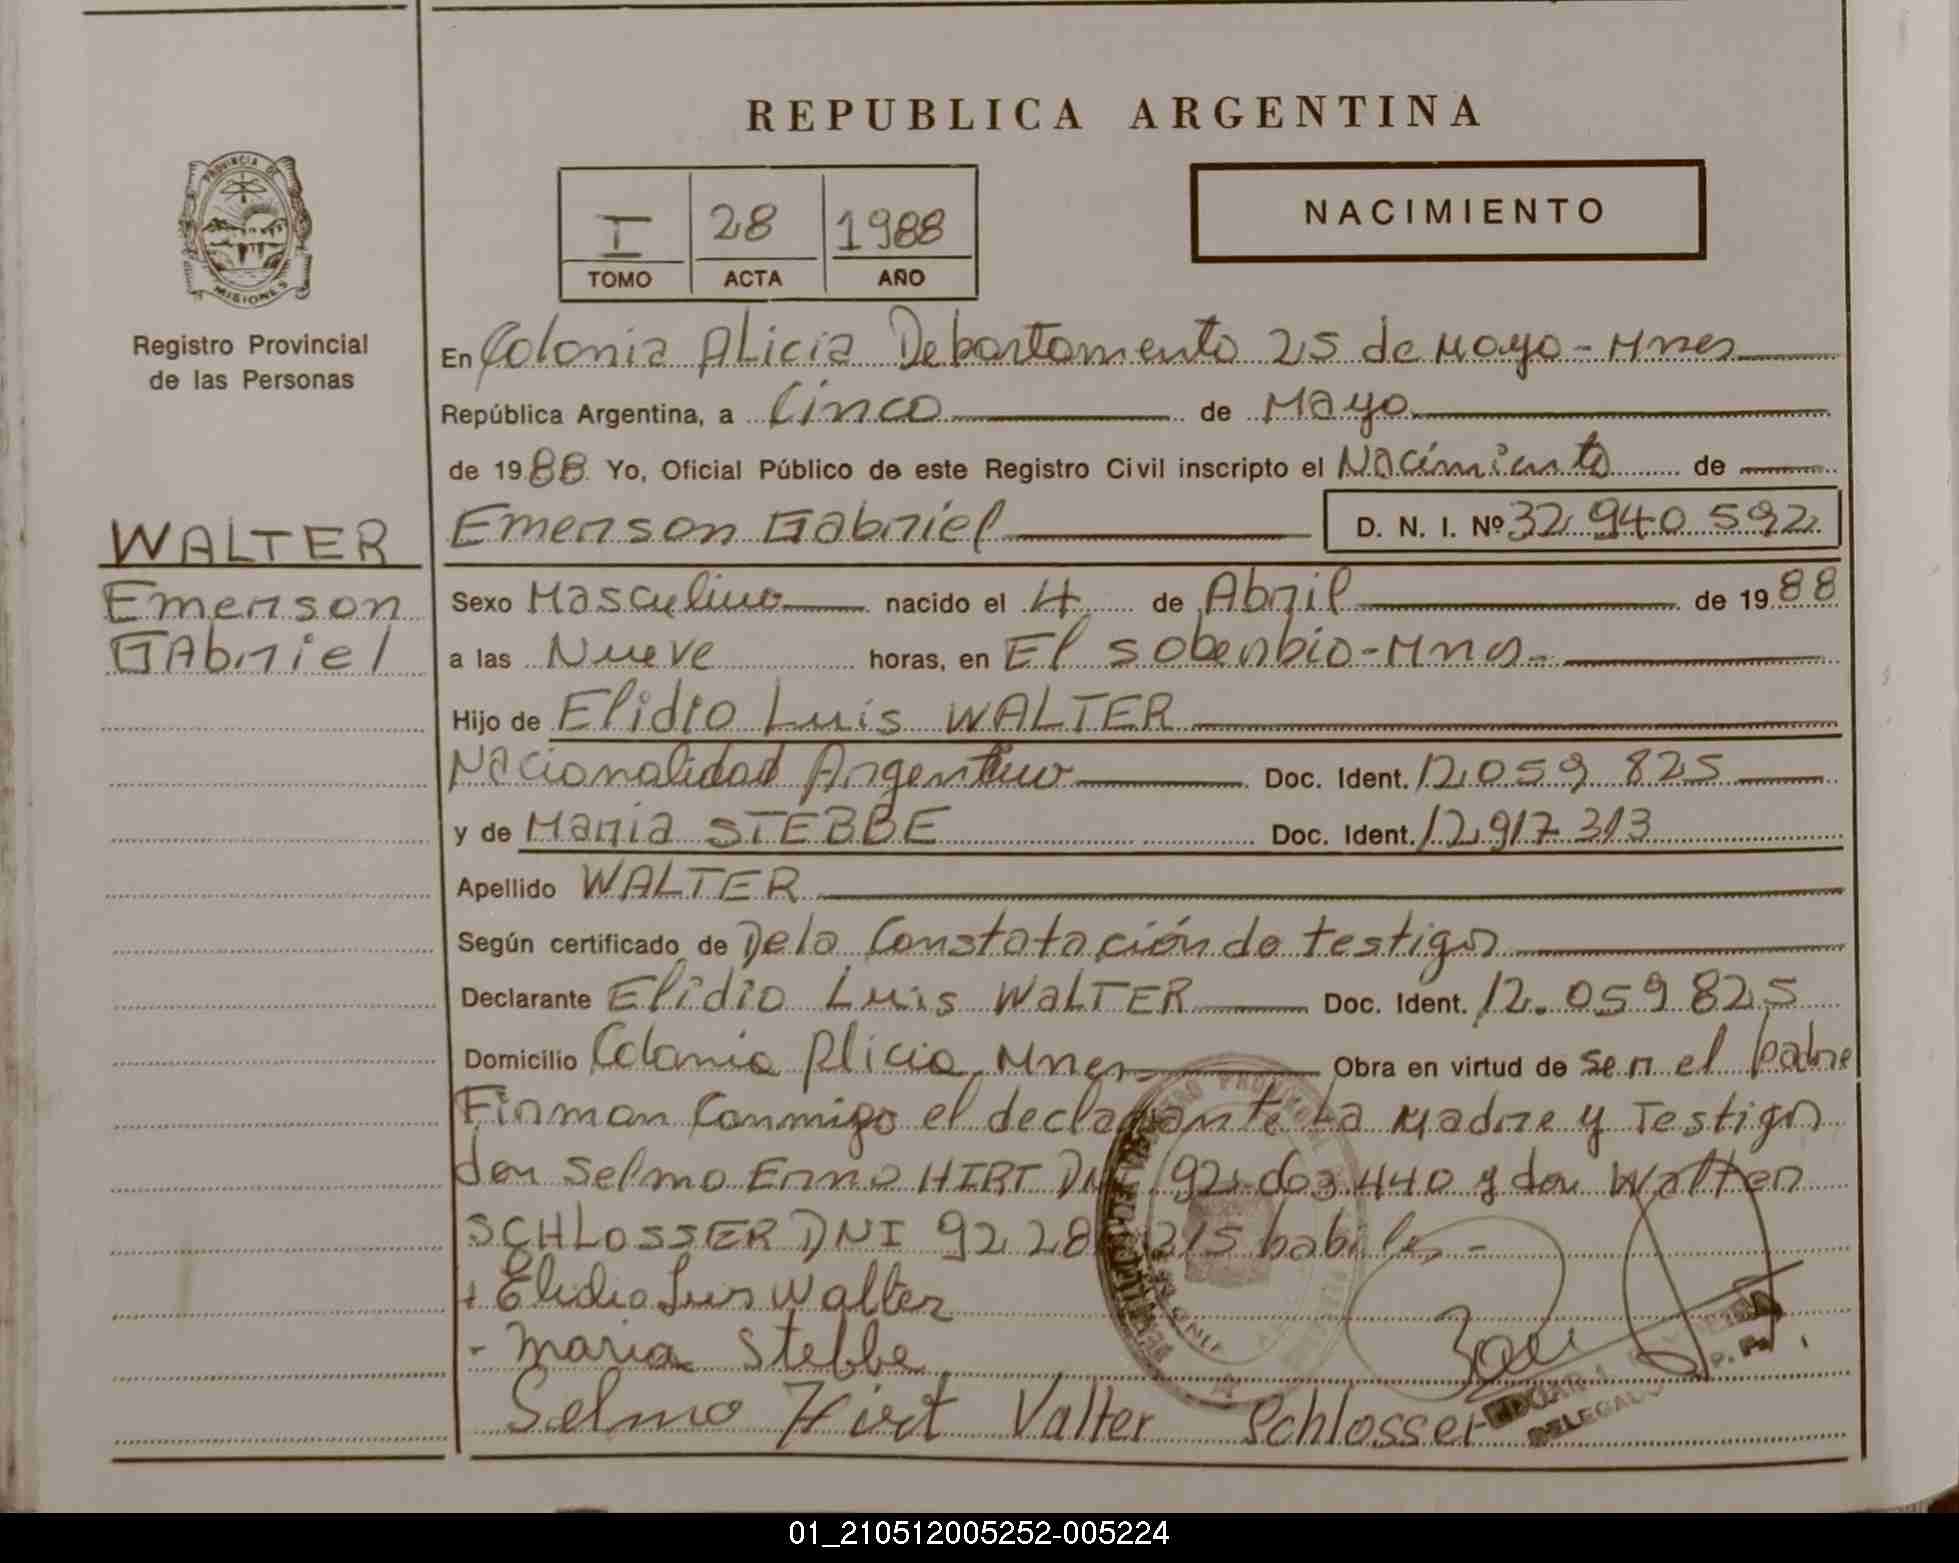 REPUBLICA ARGENTINA
PROVINCIA DE
MISIONES
Registro Provincial
de las Personas
I 28 1988
TOMO ACTA AÑO
NACIMIENTO
En Colonia Alicia Departamento 25 de Mayo - Mnes
República Argentina, a Cinco de Mayo
de 1988 Yo, Oficial Público de este Registro Civil inscripto el Nacimiento de
Emerson Gabriel D. N. I. Nº 32 940 592
WALTER
Emerson
GAbriel
Sexo Masculino nacido el 4 de Abril de 1988
a las Nueve horas, en El Soberbio - Mnes
Hijo de Elidio Luis WALTER
Nacionalidad Argentino Doc. Ident. 12 059 825
y de Maria STEBBE Doc. Ident. 12 917 313
Apellido WALTER
Según certificado de De la Constatación de testigos
Declarante Elidio Luis WaLTER Doc. Ident. 12.059 825
Domicilio Colonia Alicia Mnes Obra en virtud de ser el padre
Firman Conmigo el declarante La Madre y Testigos
don Selmo Erno HIRT DNI 92 440 y don Walter
SCHLOSSER DNI 92 28 215 habiles -
+ Elidio Luis Walter
- Maria Stebbe
Selmo Hirt Valter Schlosser
DELEGADO
01_210512005252-005224